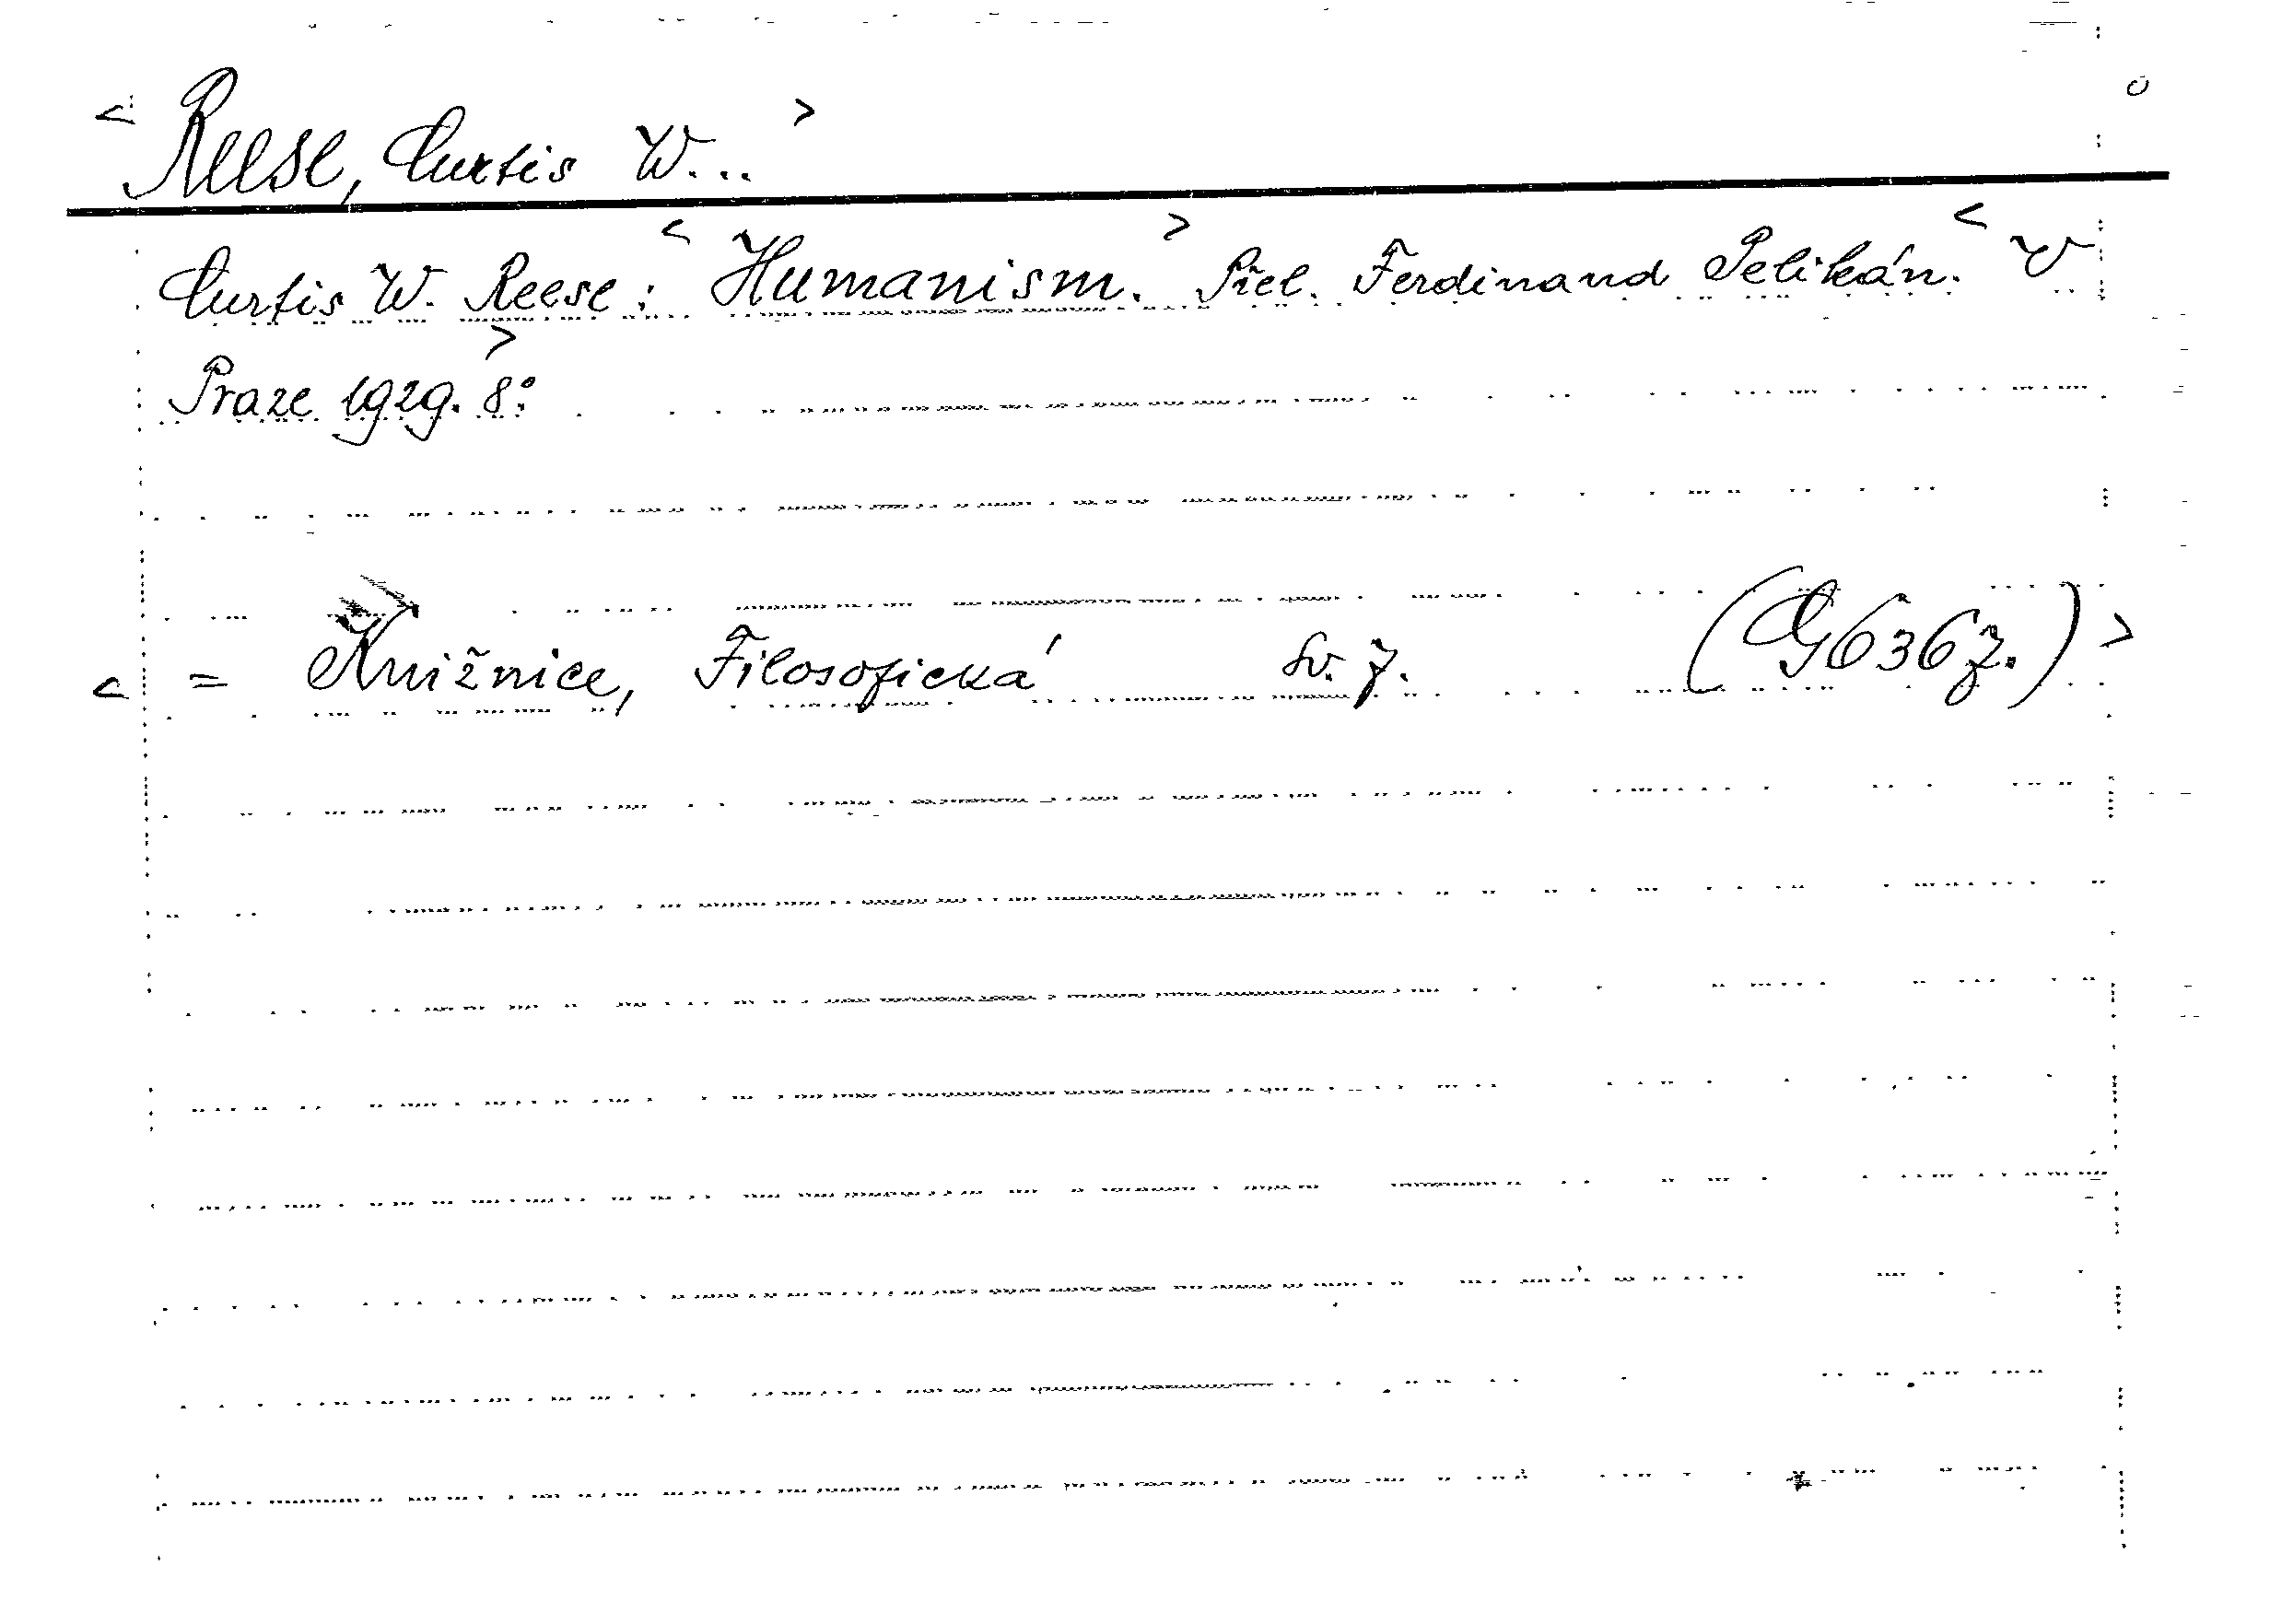 < Reese, Curtis W... >
Curtis W. Reese: < Humanism. > Přel. Ferdinand Pelikán. < V
Praze 1929. > 8°.
< = Knižnice, Filosofická sv. 7. (G 6367.) >